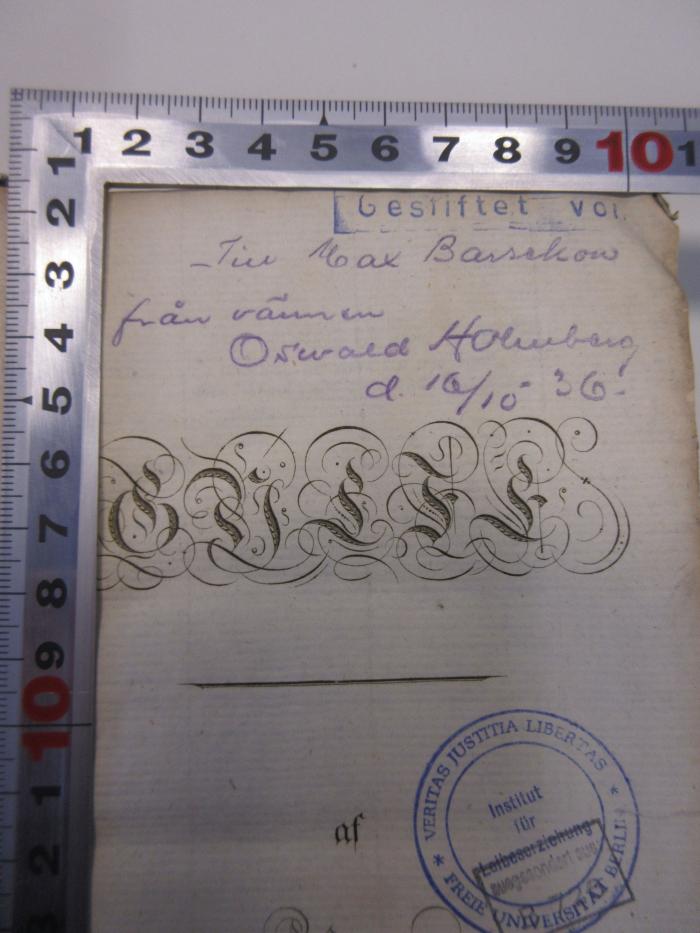 1 2 3 4 5 6 7 8 9 10 1
1
2
3
4
5
6
7
8
9
10
1
2
Gestiftet von
Till Max Barsckow
från vännen
Oswald Holmberg
d. 16/10 36.
af
VERITAS JUSTITIA LIBERTAS
* FREIE UNIVERSITÄT BERLIN *
Institut
für
Leibeserziehung
ausgesondert aus